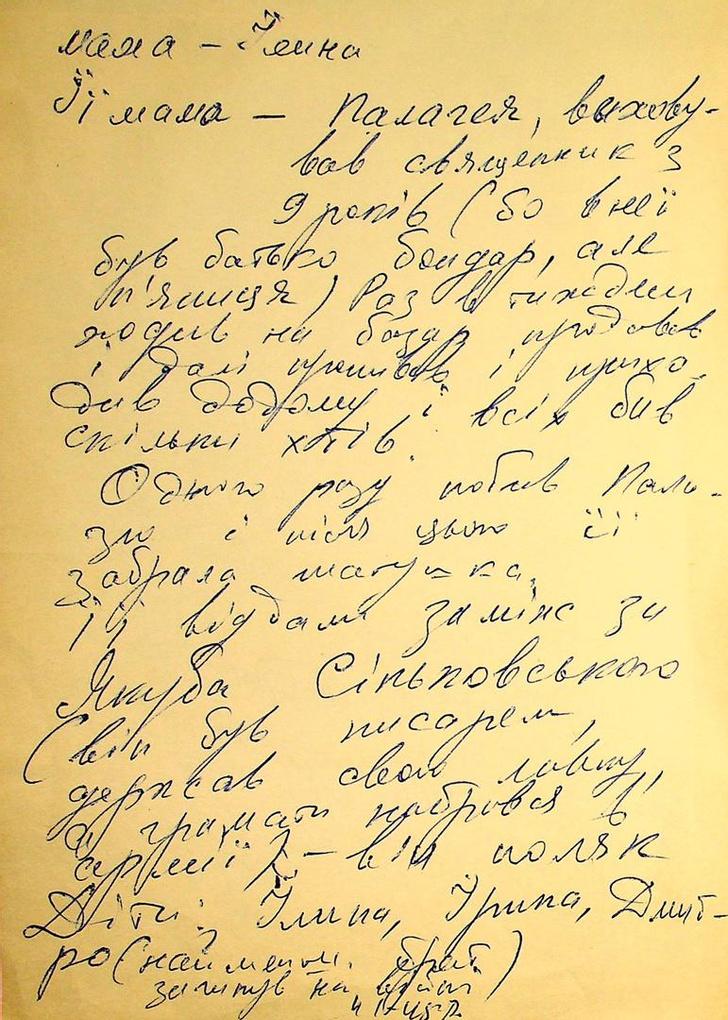 мама – Їлина
Її мама – Палагея, выхову-
вав священник з
9 років (бо в неї
був батько бондар, але
п'яниця) Раз в тиждень
ходив на базар продавав
і далі пропивав і прихо-
див додому і всіх бив
скільки хтів.
Одного разу побив Пала-
зю і після цього її
забрала матушка.
Її віддали заміж за
Якуба Сіньковського
(він був писарем,
держав свою лавку,
а грамоти набрався в
армії) – він поляк
Діти: Їлина, Їрина, Дмит-
ро (найменш. брат
загинув на війні)